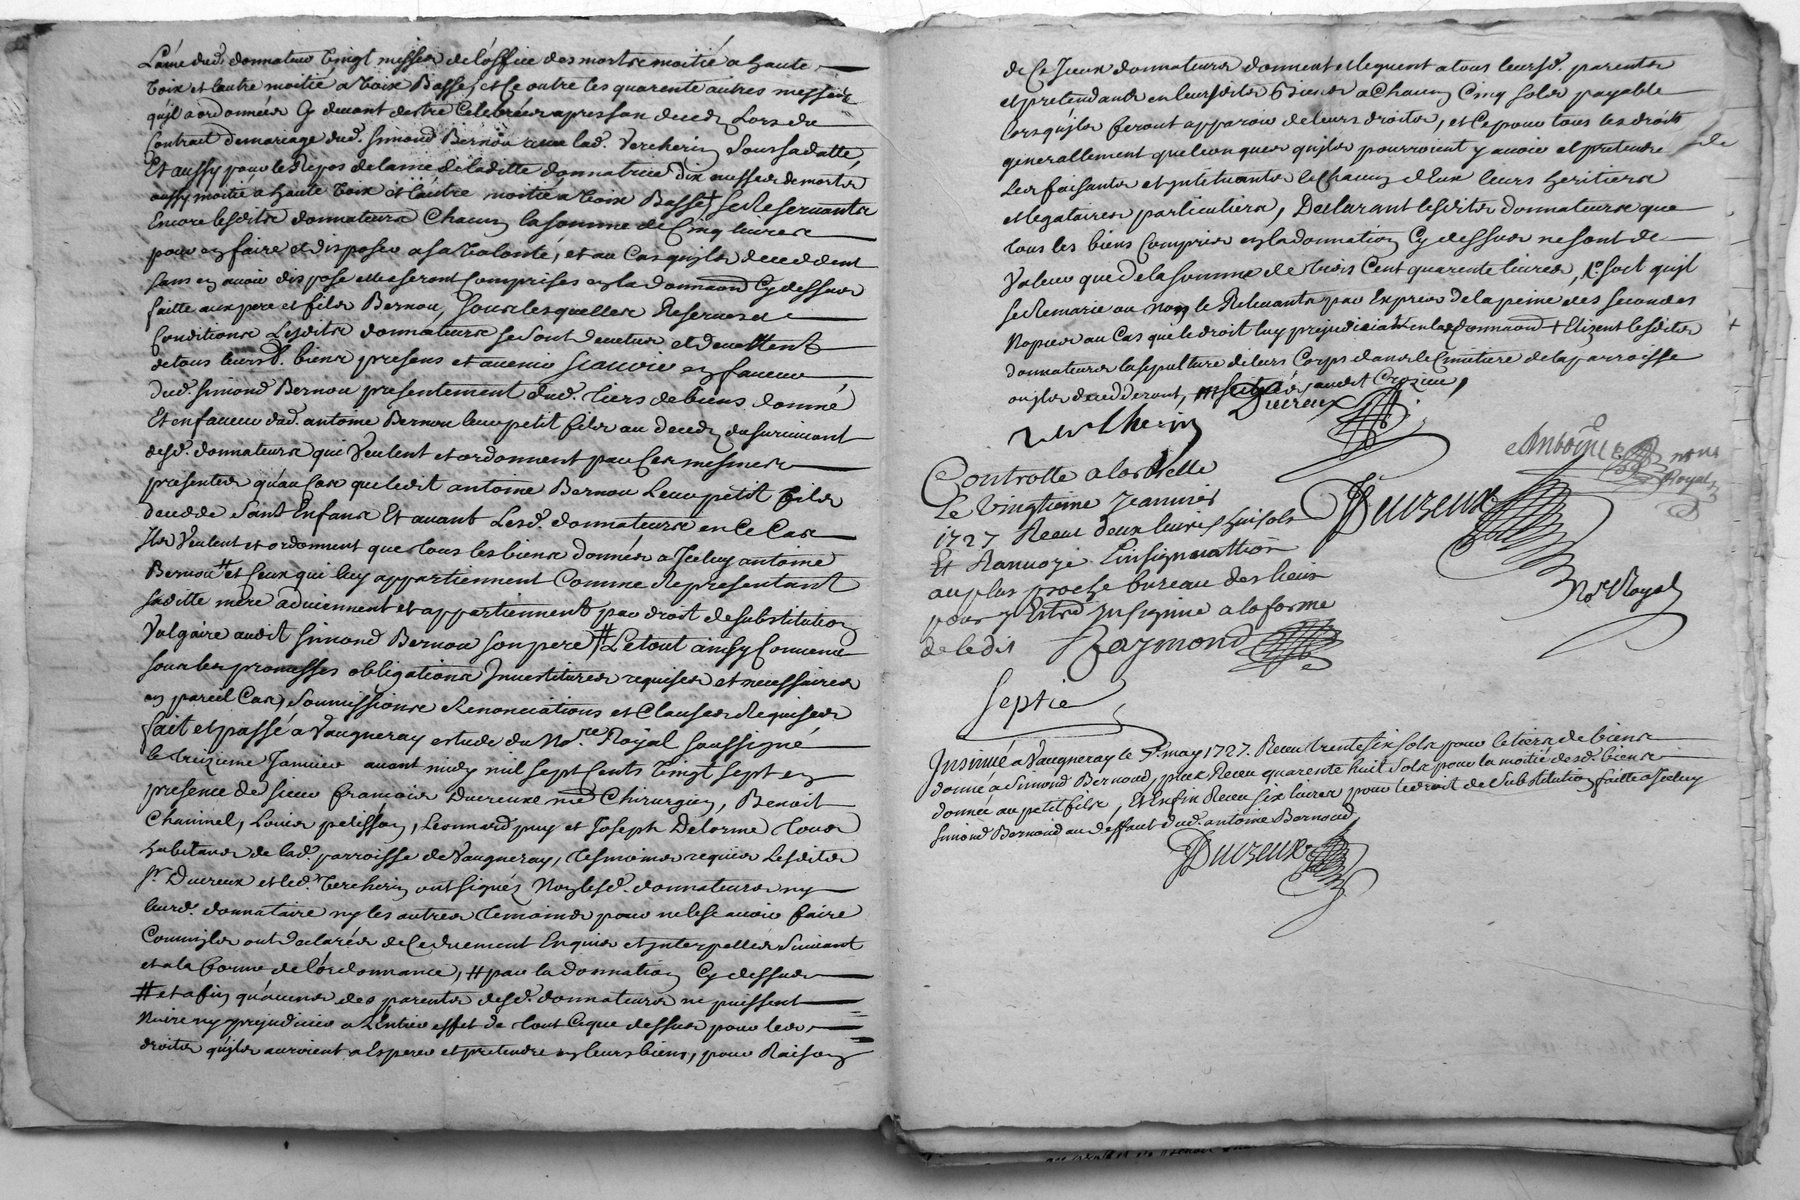 L'ame dud. donnateur vingt messes de l'office des morts moitié a haute
voix et l'autre moitié a voix Basse, et ce outre les quarente autres messes
qu'il a ordonnées Cy devant destre Celebrées apres son deceds Lors du
Contrait de mariage dud. Simond Bernou avec lad. Vercherin sous sa datte,
Et aussy pour le Repos de l'ame de laditte donnatrice dix messes de morts
aussy moitié a haute voix et l'autre moitié a voix Basse + se Reservants
Encore lesdits donnateurs Chacun la somme de Cinq livres
pour en faire et disposer a sa volonté, et au Cas qu'ils decedent
sans en avoir disposé elles seront Comprises en la donnaon Cy dessus
faitte aux pere et fils Bernou, sous lesquelles Reserves et
Conditions Lesdits donnateurs se sont devetus et devettent
de tous leursd. biens presens et avenir scavoir en faveur
dud. Simond Bernou presentement dud. tiers de biens donné
Et en faveur dud. antoine Bernou leur petit fils au deceds du survivant
desd. donnateurs qui veulent et ordonnent par Ces mesmes
presentes qu'au Cas que ledit antoine Bernou Leur petit fils
decede sans Enfans Et avant Lesd. donnateurs en Ce Cas
Ils veulent et ordonnent que tous les biens donnés a Iceluy antoine
Bernou et Ceux qui luy appartiennent Comme Representant
saditte mere adviennent et appartiennent par droit de substitution
Vulgaire audit Simond Bernou son pere # Le tout ainsy Convenu
sous les promesses obligations Investitures requises et necessaires
en pareil Cas, soumissions Renonciations et Clauses Requises
fait et passé a Vaugneray estude du Nore. Royal soussigné
le treizieme Janvier avant midy mil sept Cents vingt sept en
presence de sieur françois Ducreux me Chirurgien, Benoit
Chaninel, Louis pelisson, Leonnard puy et Joseph Delorme tous
habitans de lad. parroisse de Vaugneray, tesmoins requis Lesdits
sr. Ducreux et led. Vercherin ont signés Non lesd. donnateurs ny
leurd. donnataire ny les autres temoins pour ne le scavoir faire
Comm'ils ont declarés de Ce duement Enquis et Interpellés Suivant
et a la forme de l'ordonnance, # par la donnation Cy dessus
# et afin qu'aucuns des parents desd. donnateurs ne puissent
Nuire ny prejudicier a L'entier effet de tout Ceque dessus pour les
droits qu'ils auroient a Esperer et pretendre en leurs biens, pour Raison
de Ce Iceux donnateurs donnent et leguent a tous leursd. parents
et pretendants en leursdits Biens a Chacun Cinq sols payable
lors qu'ils feront apparoir de leurs droits, et Ce pour tous les droits
generallement quelconques qu'ils pourroient y avoir et pretendre
Les faisants et Instituants le Chacun d'Eux leurs heritiers
et legataires particuliers, Declarant lesdits donnateurs que
tous les biens Compris en la donnation Cy dessus ne sont de
Valeur que de la somme de trois Cent quarente livres, soit qu'il
se Remarie ou Non le Relevants par Exprès de la peine des secondes
Nopces au Cas que le droit luy prejudiciat en lad. donnaon + Elizent lesdits
donnateurs la sepulture de leurs Corps dans le Cimitiere de la parroisse
ou ils decedderont,
Ducreux
Vercherin
Controlle a
Le vingtieme Jeanvier
1727 Receu deux livres huit sols
Et Ranvoyé l'insignuattion
au plus proche bureau des lieux
pour y Estre Insignué a la forme
de ledit Raymond
Ducreux
Nore Royal
Antoine
Royal
Insinué a Vaugneray le 7e. may 1727. Receu trente six sols pour le tiers de biens
donné a Simond Bernoud, plus Receu quarente huit sols pour la moitié desd. biens
donnée au petit fils, Et Enfin Receu six livres pour le droit de substitution faitte a Iceluy
Simond Bernoud au deffaut dud. antoine Bernoud
Ducreux